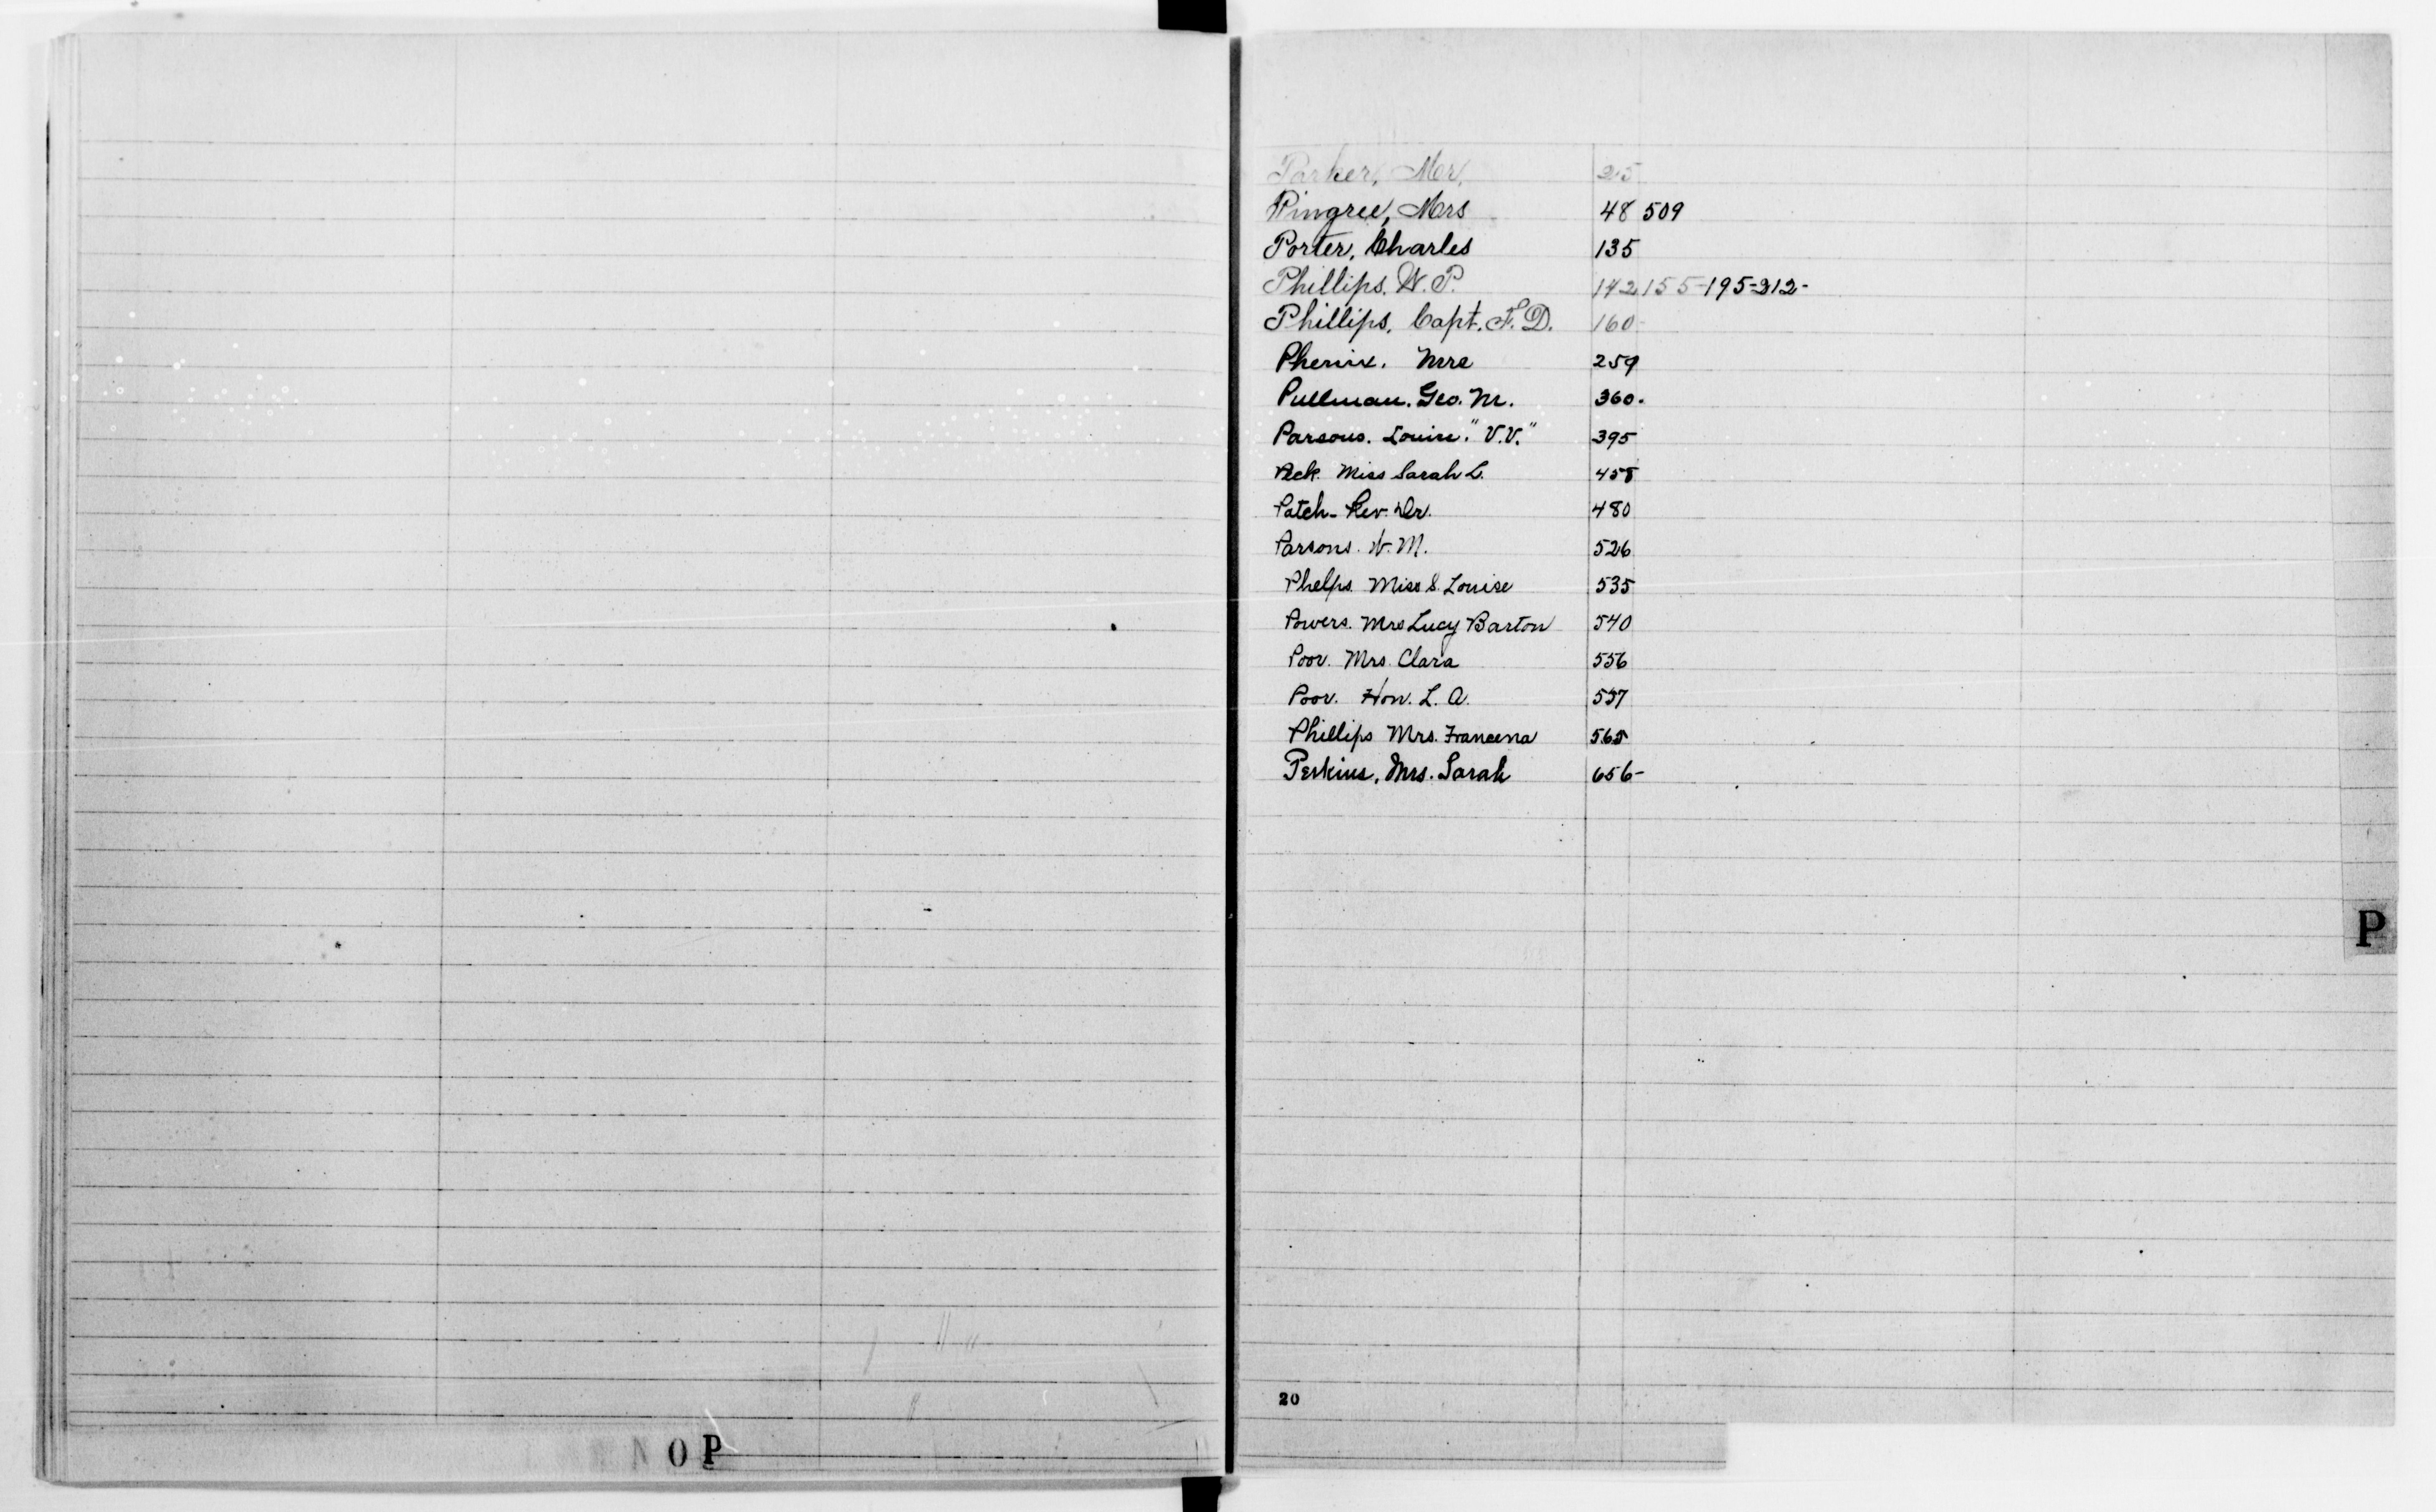 Parker, Mr. 25
Pingree, Mrs 48 509
Porter, Charles 135
Phillips. W. P. 142 155-195-212-
Phillips, Capt. F. D. 160-
Phenix. Mrs 259
Pullman. Geo. M. 360.
Parsons. Louise. "V.V." 395
Peck. Miss Sarah L. 458
Patch- Rev. Dr. 480
Parsons. W. M. 526
Phelps. Miss S. Louise 535
Powers. Mrs Lucy Barton 540
Poor. Mrs. Clara 556
Poor. Hon. L. A. 557
Phillips Mrs. Francena 565
Perkins, Mrs. Sarah 656-
P
20
N O P